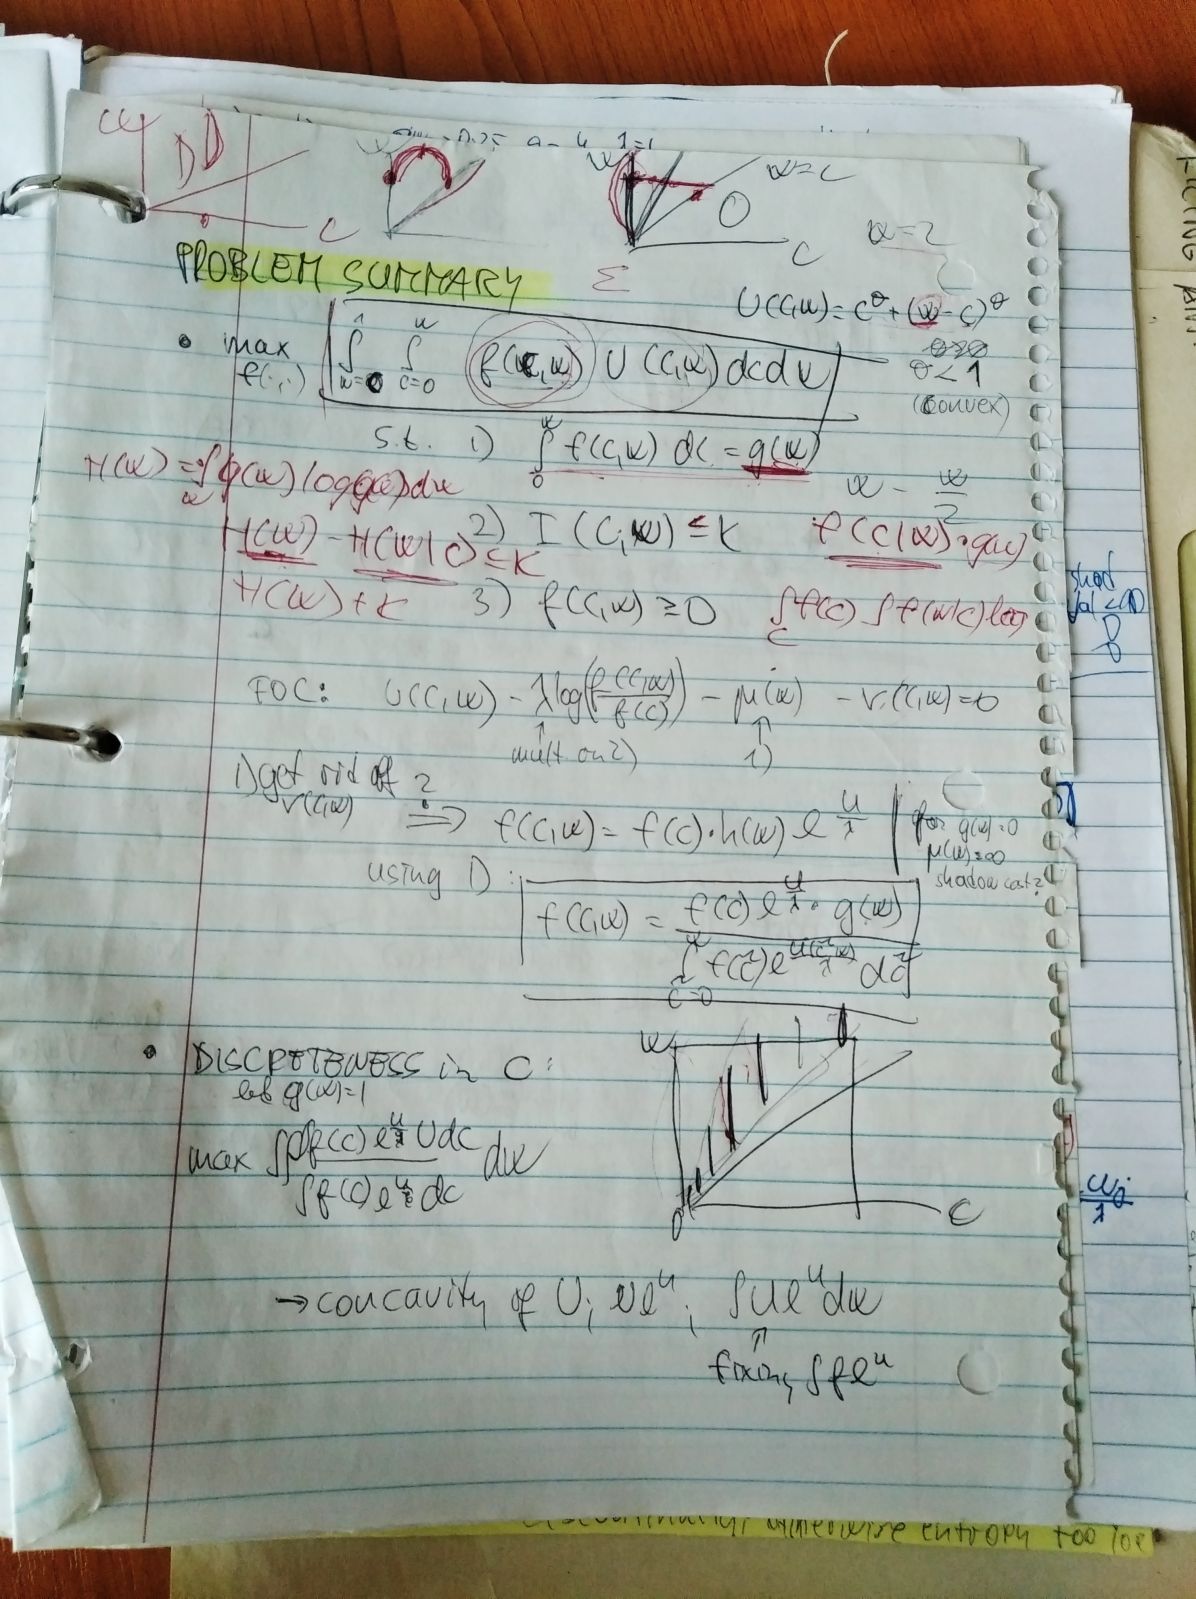 w
C
w=c
C
PROBLEM SUMMARY
U(C,w) = c^θ + (w-c)^θ
• max f(.,.) ∫_{w=0}^{1} ∫_{c=0}^{w} f(c,w) U(C,w) dc dw
θ<1
(convex)
s.t. 1) ∫_0^w f(C,w) dc = g(w)
H(w) = ∫_w g(w) log g(w) dw
w - w/2
H(w) - H(w|C) ≤ K
2) I(C,w) ≤ K
f(C|w)·g(w)
H(w) + K
3) f(C,w) ≥ 0
∫_C f(c) ∫ f(w|c) log
FOC: U(C,w) - λ log(f(C,w)/f(c)) - μ(w) - ν(C,w) = 0
mult on 2)
1)
1) get rid of ν(C,w)
? ⇒ f(C,w) = f(c)·h(w) e^{U/λ}
for g(w)=0
μ(w)=∞
shadow cost?
using 1):
f(C,w) = f(c) e^{U/λ} · g(w) / ∫_{c̃=0}^{w} f(c̃) e^{U(c̃,w)/λ} dc̃
• DISCRETENESS in C:
let g(w)=1
w
0
C
max ∫ ∫f(c) e^{U/λ} U dc / ∫f(c) e^{U/λ} dc dw
→ concavity of U; Ue^u; ∫Ue^u dw
↑
fixing ∫fe^u
otherwise entropy too low